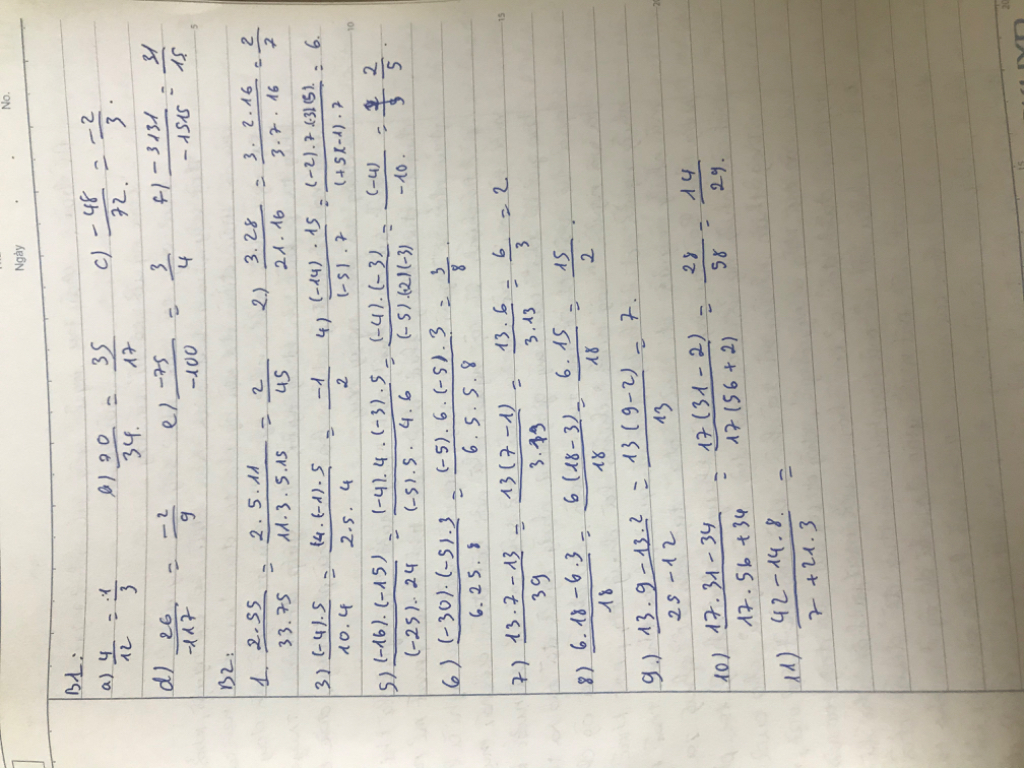 No.
Ngày
B1:
a) 4/12 = 1/3 b) 70/34 = 35/17 c) -48/72 = -2/3.
d) 26/-117 = -2/9 e) -75/-100 = 3/4 f) -3131/-1515 = 31/15
B2:
1. 2.55/33.75 = 2.5.11/11.3.5.15 = 2/45 2) 3.28/21.16 = 3.2.16/3.7.16 = 2/7
3) (-4).5/10.4 = (4.(-1).5/2.5.4 = -1/2 4) (-14).15/(-5).7 = (-2).7.(3)(5)./(+5)(-1).7 = 6.
5) (-16).(-15)/(-25).24 = (-4).4.(-3).5/(-5).5.4.6 = (-4).(-3)/(-5).(2)(-3) = (-4)/-10. = 2/5.
6) (-30).(-5).3/6.25.8 = (-5).6.(-5).3/6.5.5.8 = 3/8.
7) 13.7-13/39 = 13(7-1)/3.13 = 13.6/3.13 = 6/3 = 2
8) 6.18-6.3/18 = 6(18-3)/18 = 6.15/18 = 15/2.
9.) 13.9-13.2/25-12 = 13(9-2)/13 = 7.
10) 17.31-34/17.56+34 = 17(31-2)/17(56+2) = 28/58 = 14/29.
11) 42-14.8./7+21.3 =